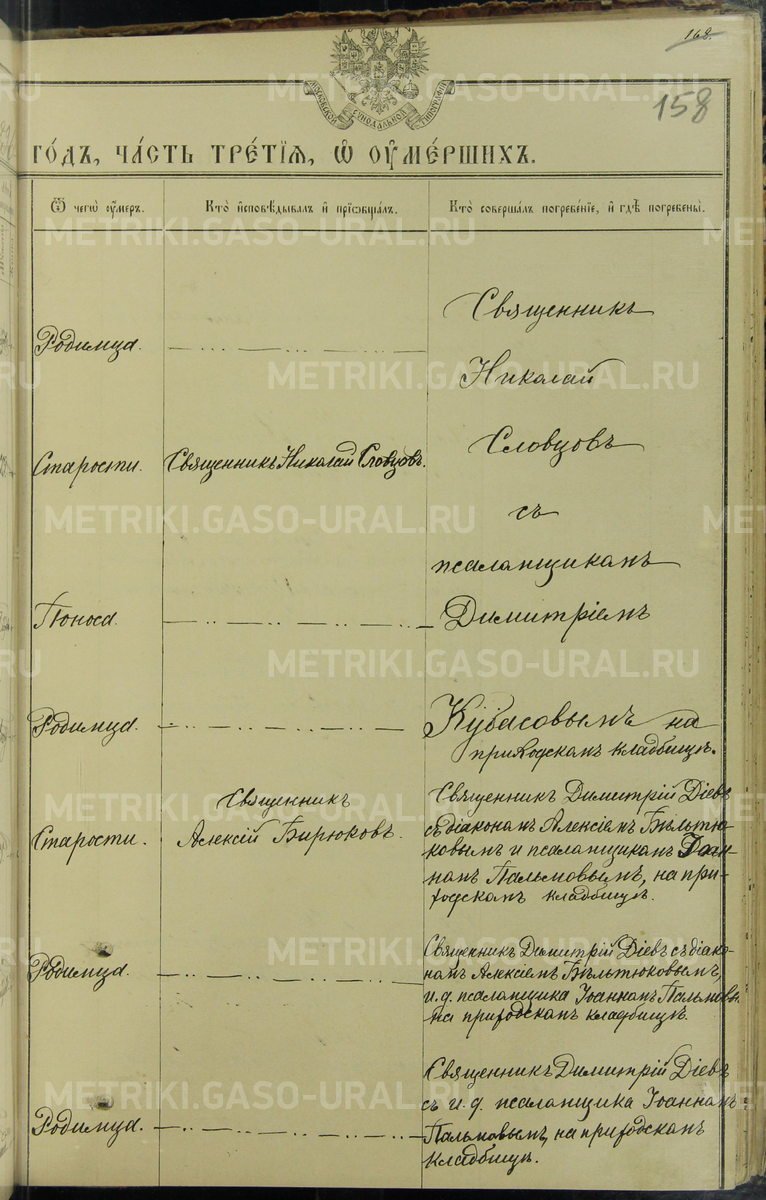 168.
158
МОСКОВСКОЙ СѴНОДАЛЬНОЙ ТИПОГРАФІИ
го́дъ, ча́сть тре́тїѧ, ѡ҆ ᲂу҆ме́ршихъ.
Ѿ чегѡ̀ ᲂу҆́мєръ.
Кто̀ и҆сповѣ́дывалъ и҆ прїѡбща́лъ.
Кто̀ соверша́лъ погребе́нїе, и҆ гдѣ̀ погребены̀.
Родимца.
Священникъ
Николай
Словцовъ
съ
псаломщикомъ
Димитріемъ
Кубасовымъ на
приходскомъ кладбищѣ.
Старости.
Священникъ Николай Словцовъ.
Поноса.
Родимца.
Старости.
Священникъ
Алексій Бирюковъ.
Священникъ Димитрій Діевъ
съ діакономъ Алексіемъ Бѣльтю-
ковымъ и псаломщикомъ Іоан-
номъ Пальмовымъ, на при-
ходскомъ кладбищѣ.
Родимца.
Священникъ Димитрій Діевъ съ діако-
номъ Алексіемъ Бѣльтюковымъ,
и.д. псаломщика Іоанномъ Пальмовы
на приходскомъ кладбищѣ.
Родимца.
Священникъ Димитрій Діевъ
съ и.д. псаломщика Іоанномъ
Пальмовымъ, на приходскомъ
кладбищѣ.
METRIKI.GASO-URAL.RU